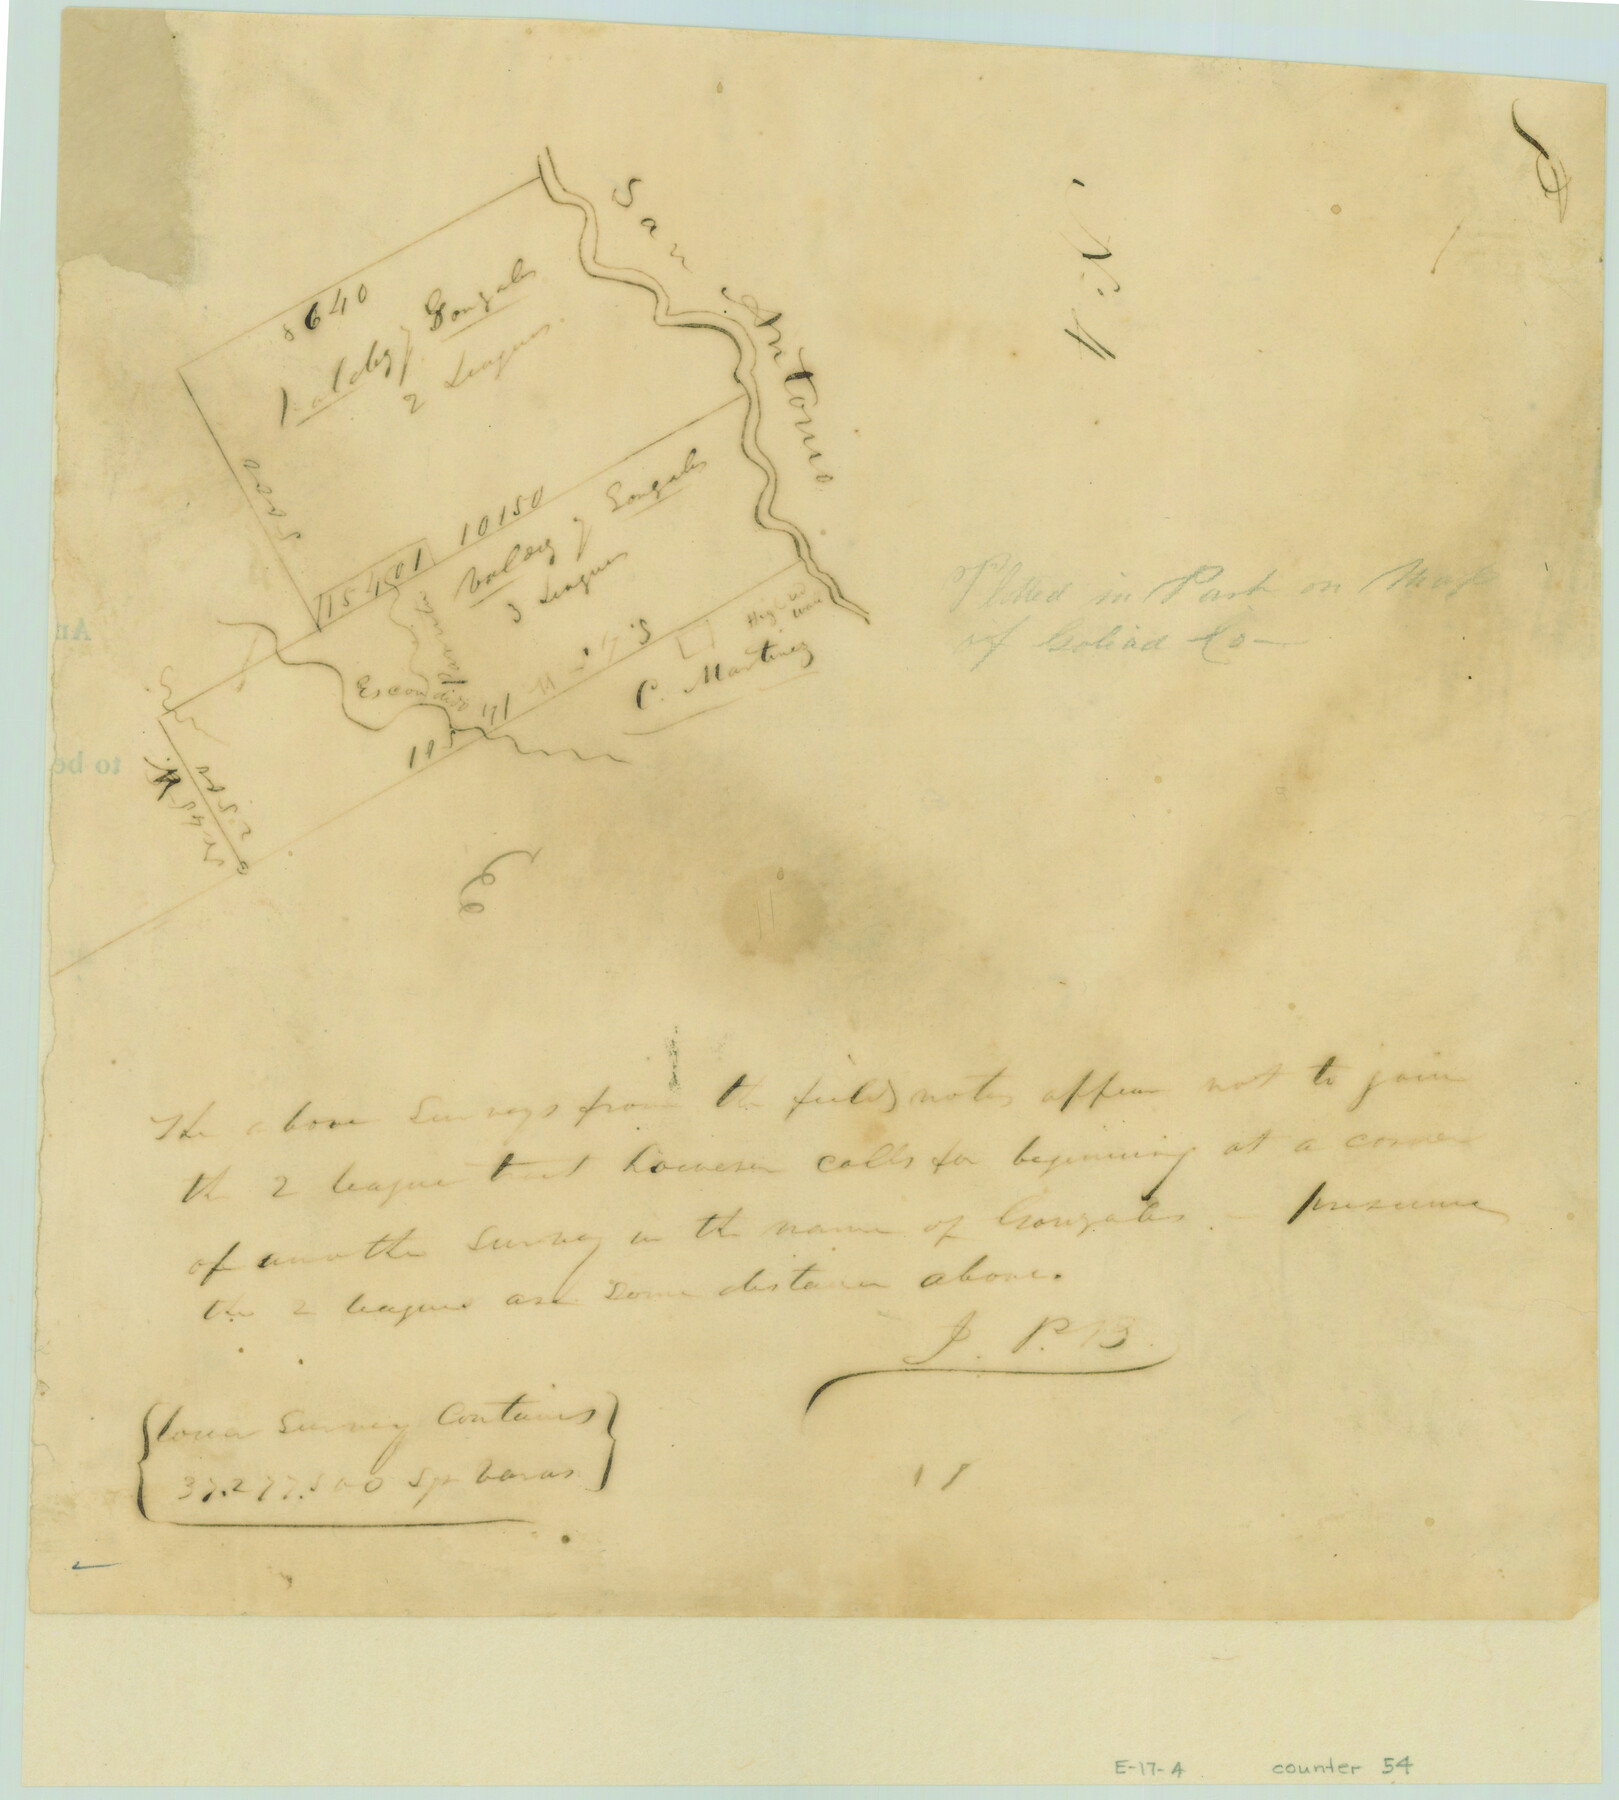 San Antonio
8640
Valdez y Gonzales
2 Leagues.
5000
10150
15401
Valdez y Gonzales
3 Leagues
Escondido
C. Martinez
Plotted in Part on Map
of Goliad Co
The above Surveys from the field notes appear not to join
the 2 league tract however calls for beginning at a corner
of another Survey in the name of Gonzales. – presume
the 2 leagues are some distance above.
J. P. B.
Lower Survey Contains
37.277.500 Sq varas
E-17-A counter 54
to be